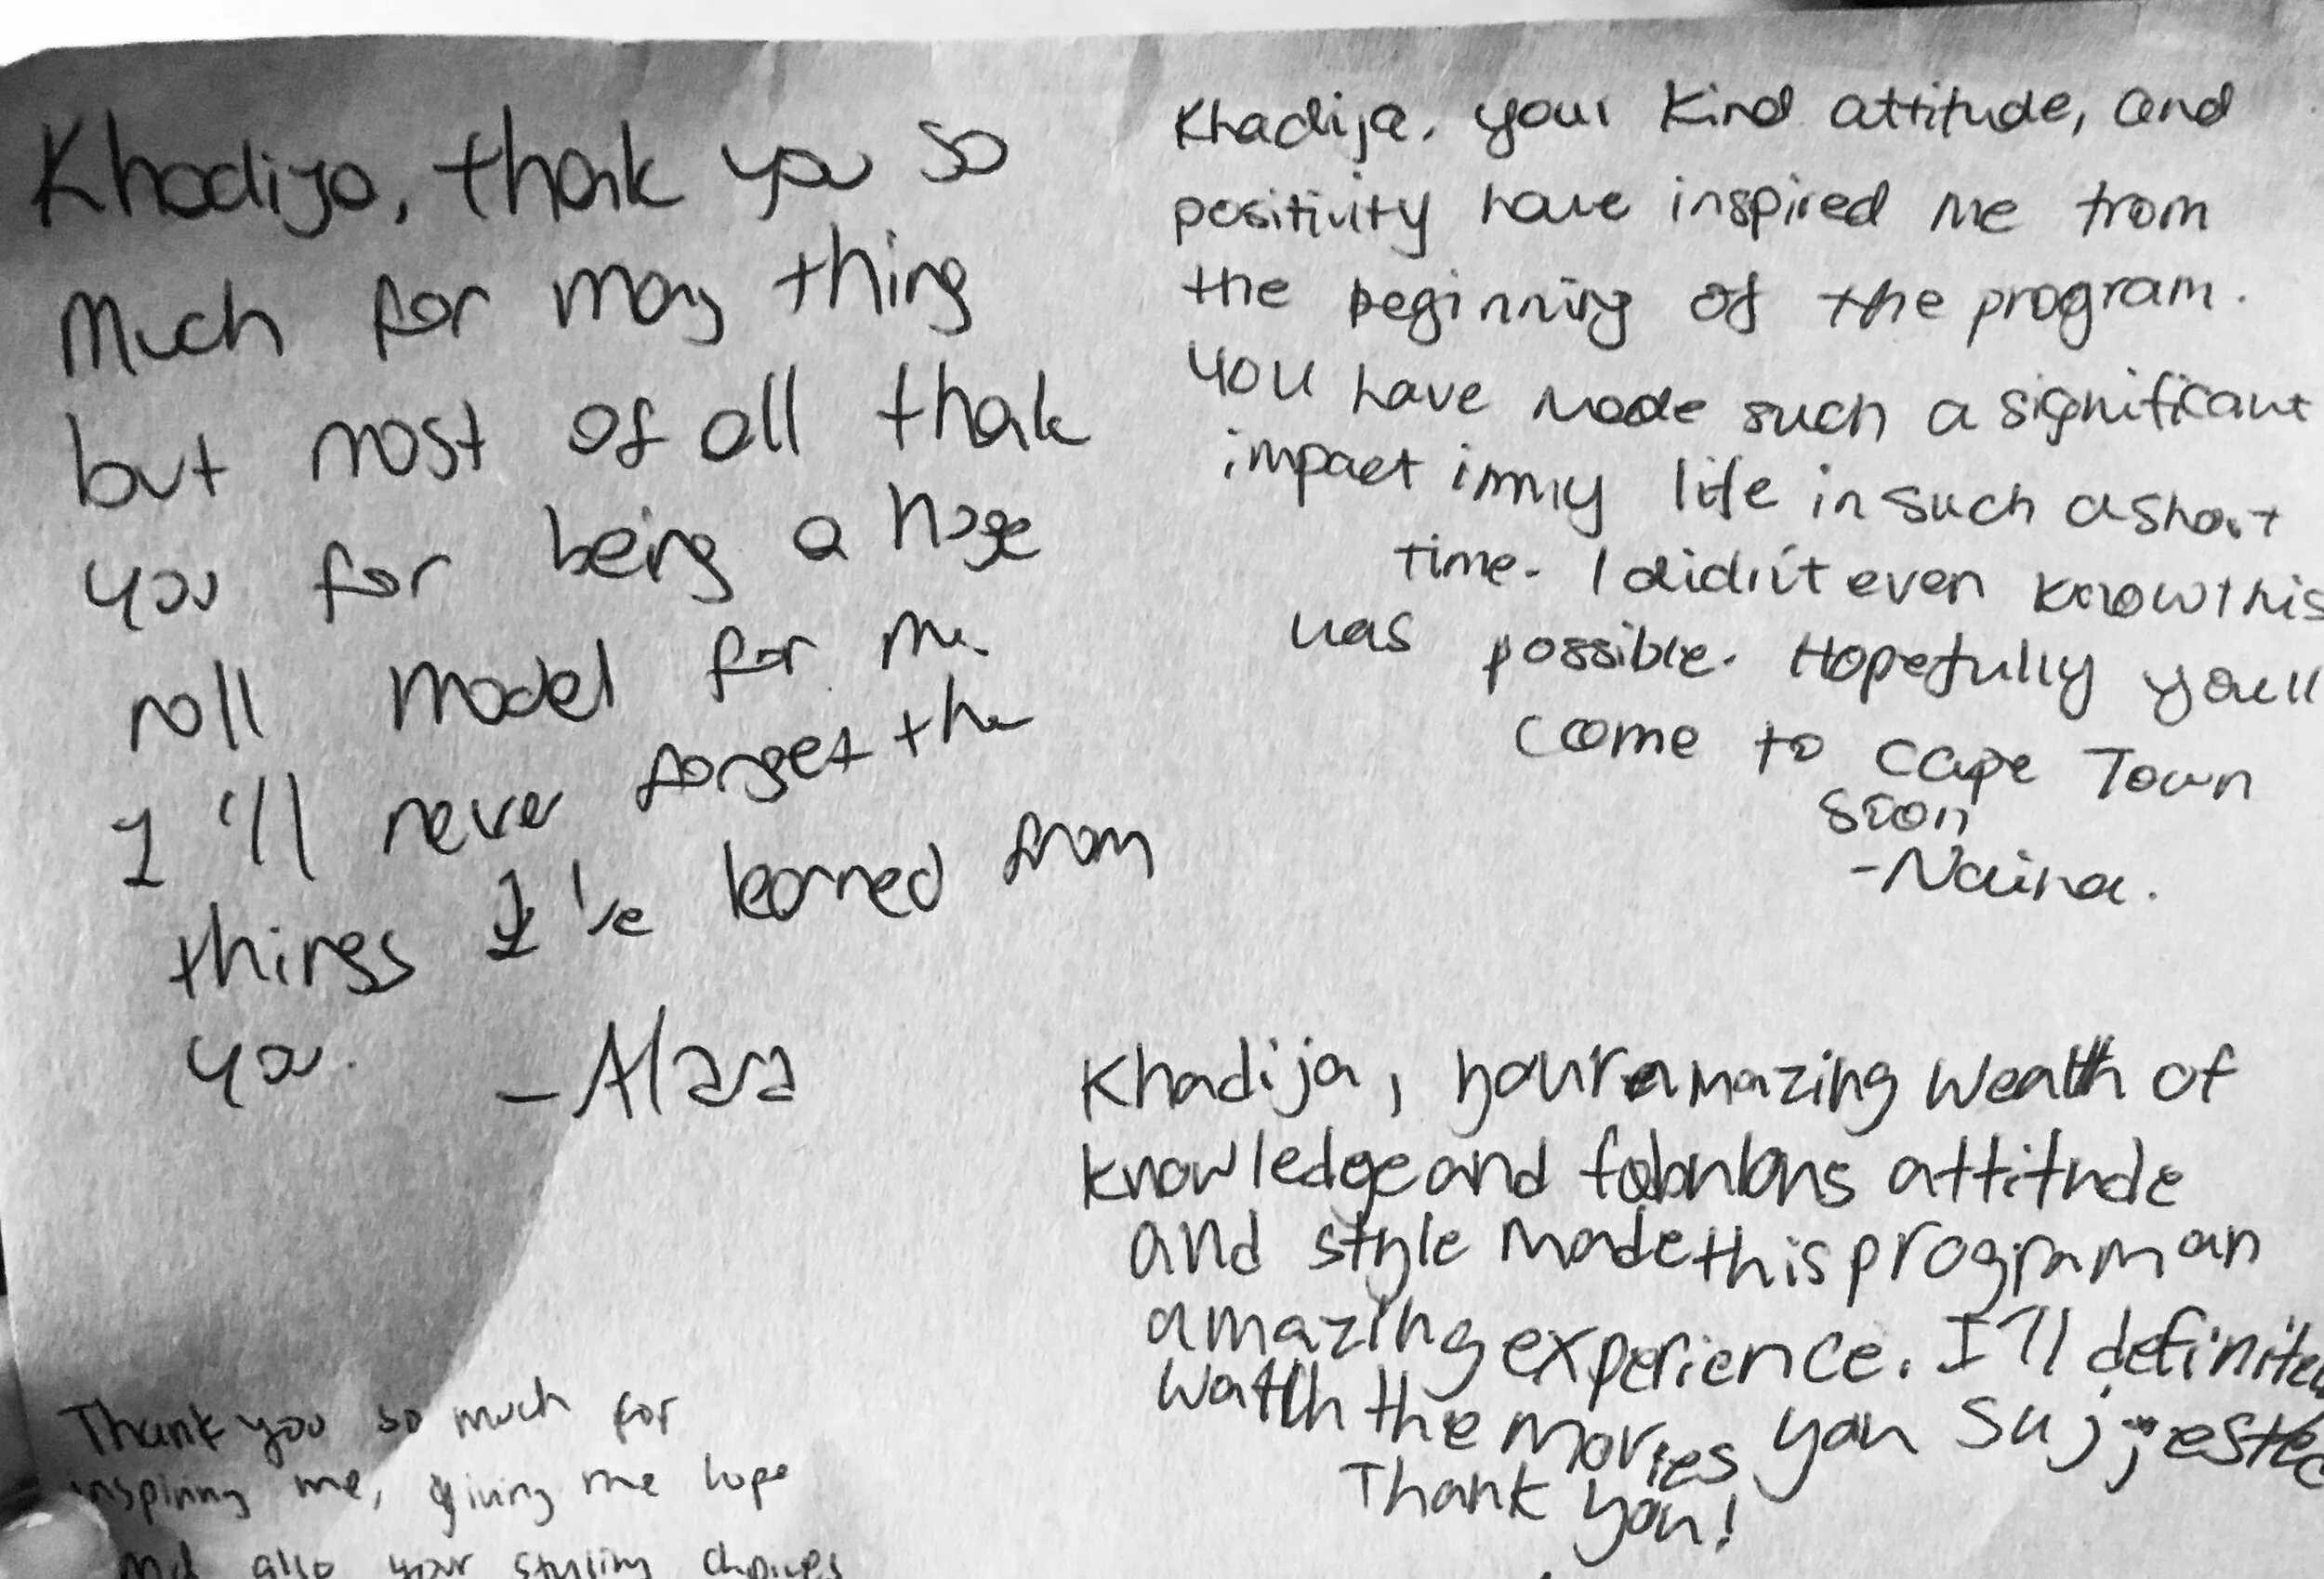 Khadija, thank you so
much for many thing
but most of all thank
you for being a huge
roll model for me.
I'll never forget the
things I've learned from
you.
-Alaa
Khadija, your kind attitude, and
positivity have inspired me from
the beginning of the program.
You have made such a significant
impact in my life in such a short
time. I didn't even know this
was possible. Hopefully you'll
come to Cape Town
soon
-Naina.
Khadija, your amazing wealth of
knowledge and fabulous attitude
and style made this program an
amazing experience. I'll definitely
watch the movies you sujjested
Thank you!
Thank you so much for
inspiring me, giving me hope
and also your styling choices